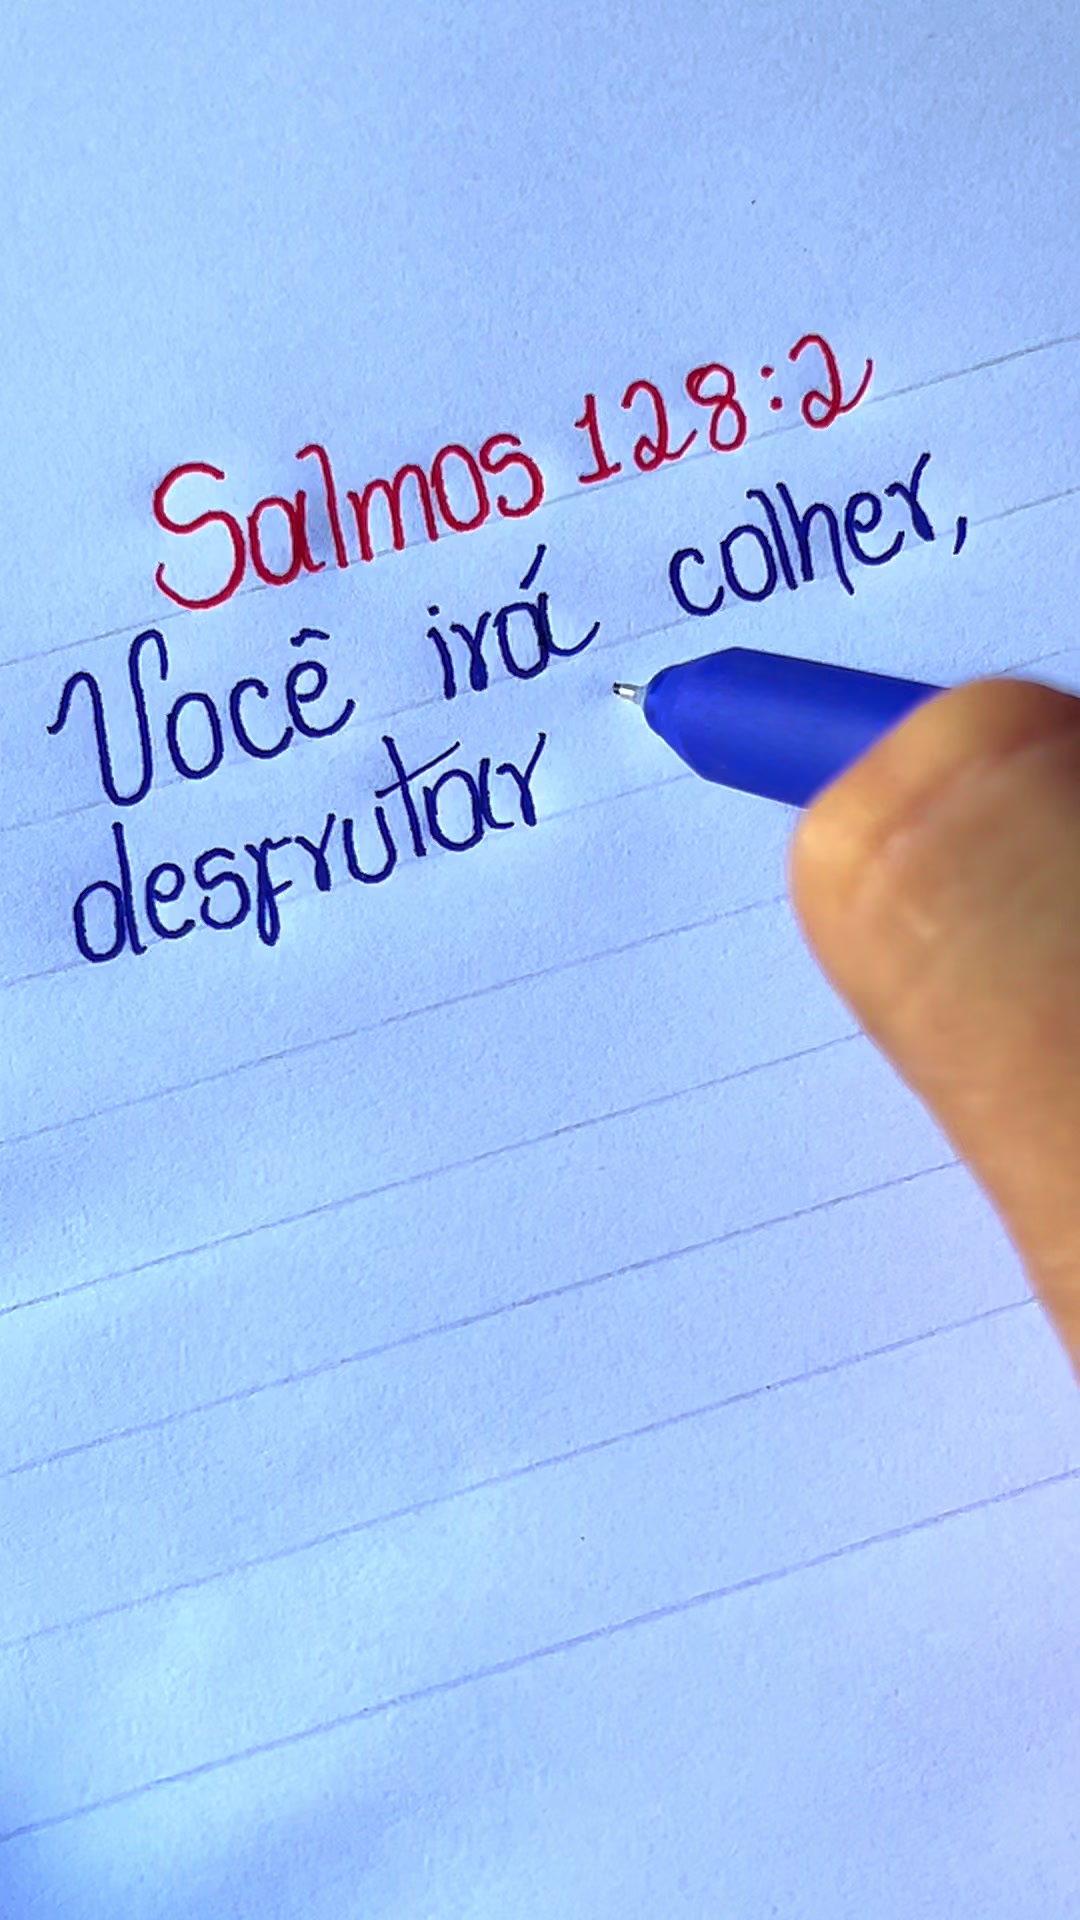 Salmos 128:2
Você irá colher,
desfrutar